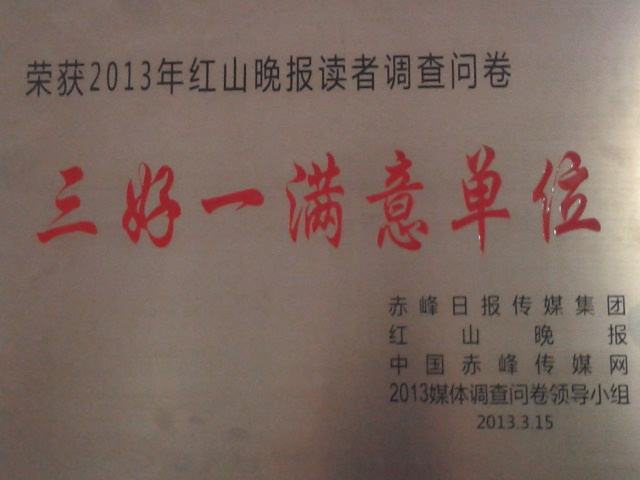 荣获2013年红山晚报读者调查问卷
三好一满意单位
赤峰日报传媒集团
红山晚报
中国赤峰传媒网
2013媒体调查问卷领导小组
2013.3.15